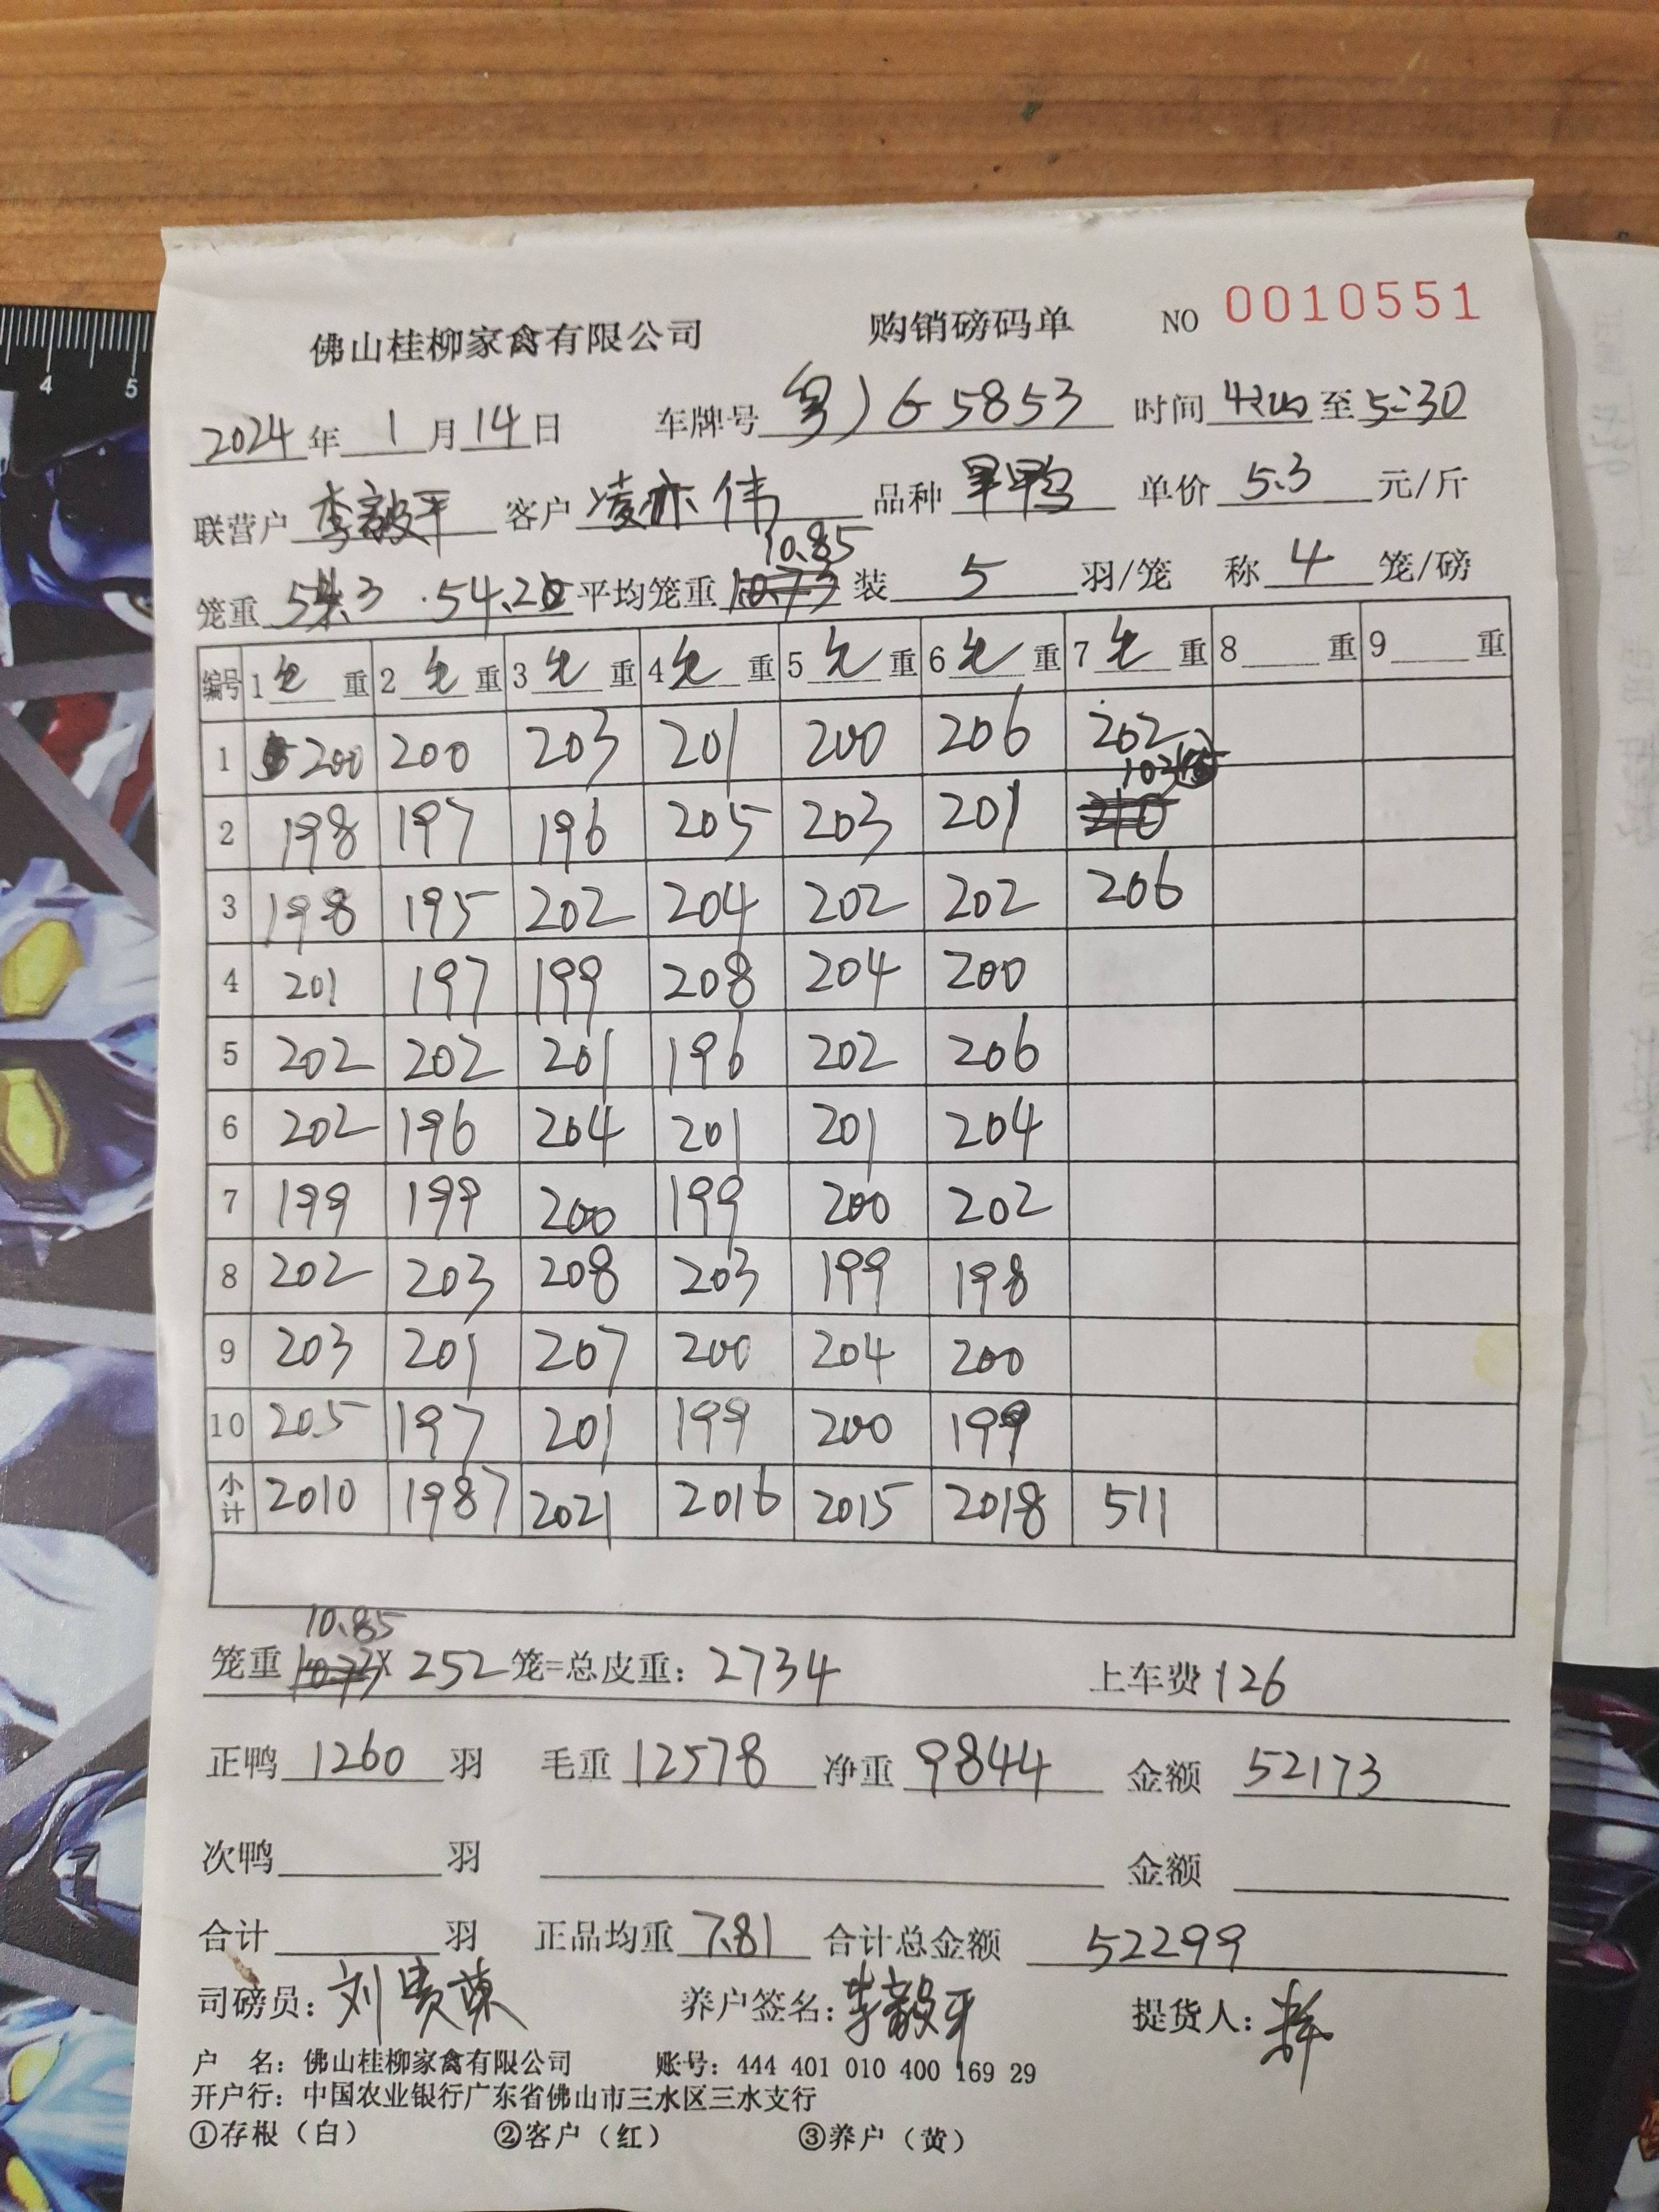 佛山桂柳家禽有限公司 购销磅码单 NO 0010551
2024年 1 月 14 日 车牌号 粤J G5853 时间 至 5:30
联营户 李毅平 客户 凌亦伟 品种 单价 5.3 元/斤
10.85
笼重 54.3 54.20 平均笼重 10.73 装 5 羽/笼 称 4 笼/磅
编号 1 重 2 重 3 重 4 重 5 重 6 重 7 重 8 重 9 重
1 200 200 203 201 200 206 202
2 198 197 196 205 203 201 103
3 198 195 202 204 202 202 206
4 201 197 199 208 204 200
5 202 202 201 196 202 206
6 202 196 204 201 201 204
7 199 199 200 199 200 202
8 202 203 208 203 199 198
9 203 201 207 200 204 200
10 205 197 201 199 200 199
小计 2010 1987 2021 2016 2015 2018 511
10.85
笼重 10.73 X 252 笼=总皮重: 2734 上车费 126
正鸭 1260 羽 毛重 12578 净重 9844 金额 52173
次鸭 羽 金额
合计 羽 正品均重 7.81 合计总金额 52299
司磅员: 刘贵荣 养户签名: 李毅平 提货人:
户 名: 佛山桂柳家禽有限公司 账号: 444 401 010 400 169 29
开户行: 中国农业银行广东省佛山市三水区三水支行
①存根（白） ②客户（红） ③养户（黄）
4 5